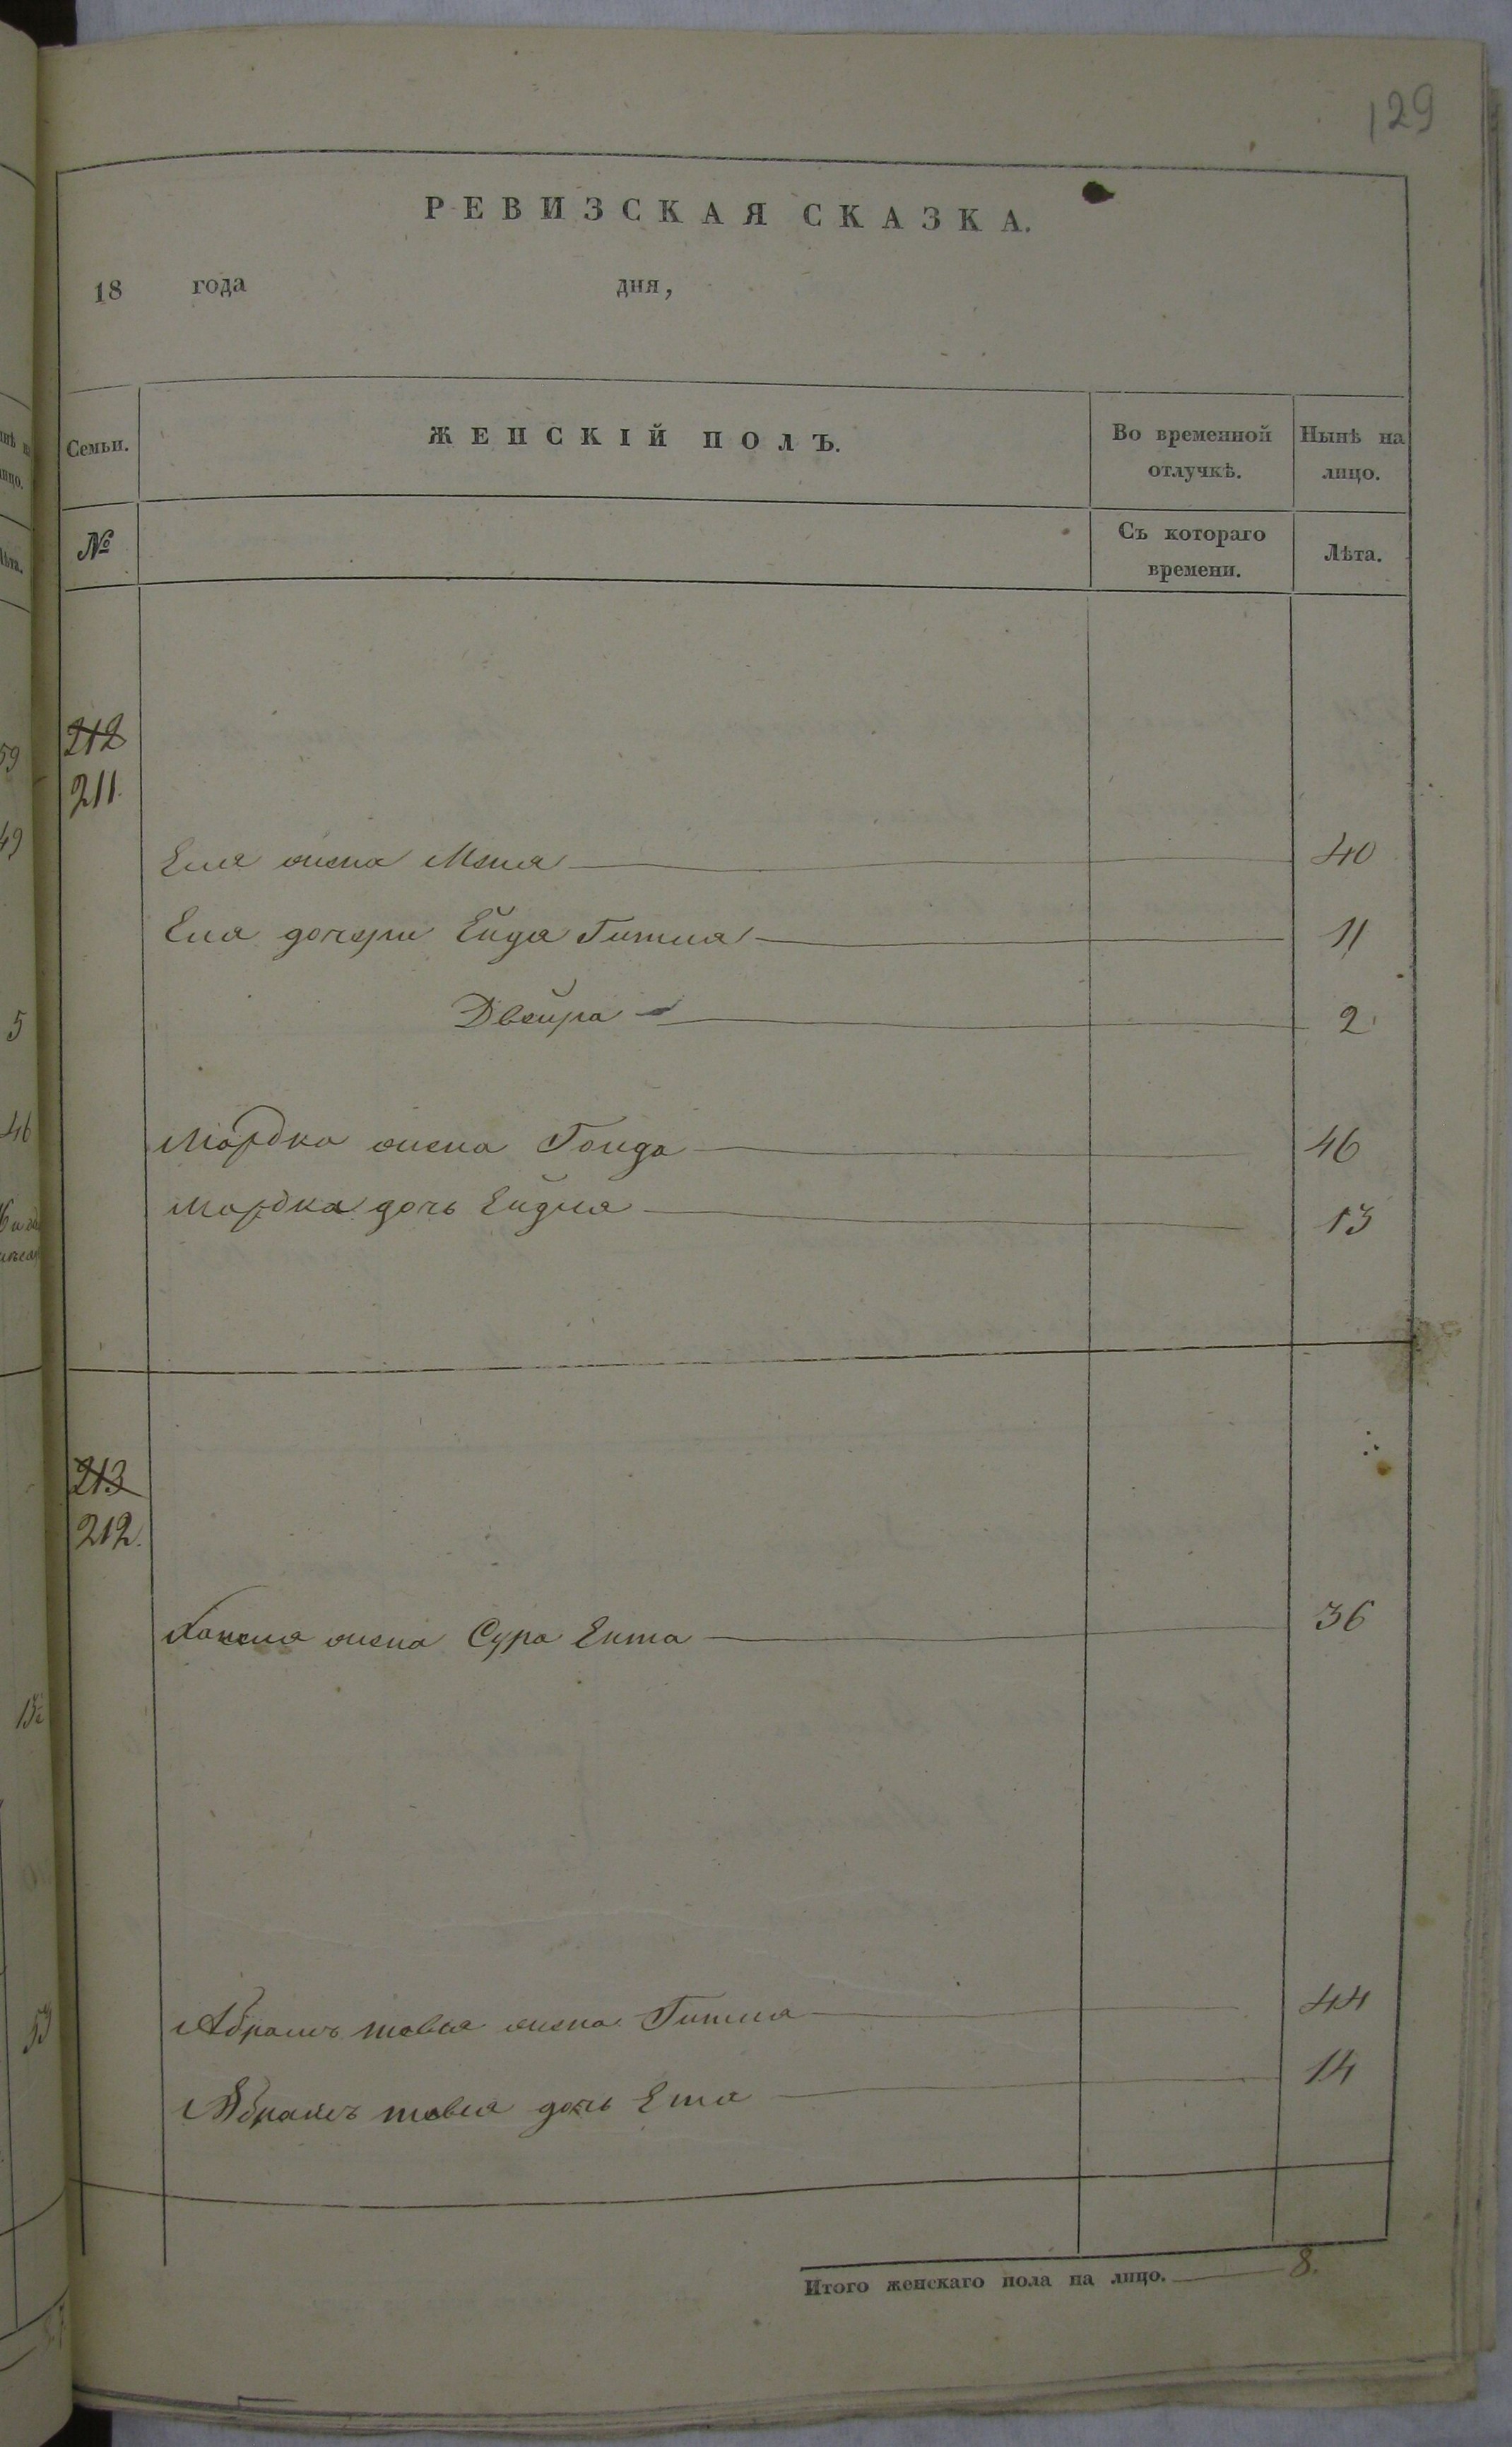 129
РЕВИЗСКАЯ СКАЗКА.
18 года дня,
Семьи. ЖЕНСКІЙ ПОЛЪ. Во временной отлучкѣ. Нынѣ на лицо.
№ Съ котораго времени. Лѣта.
212
211.
Еля жена Меня 40
Его дочери Ейда Гитля 11
Двейра 2
Мордка жена Гонда 46
Мордка дочь Ейдля 13
213
212.
жена Сура Ента 36
Абрамъ товья жена Гитля 44
Абрамъ товья дочь Ета 14
Итого женскаго пола на лицо. 8.